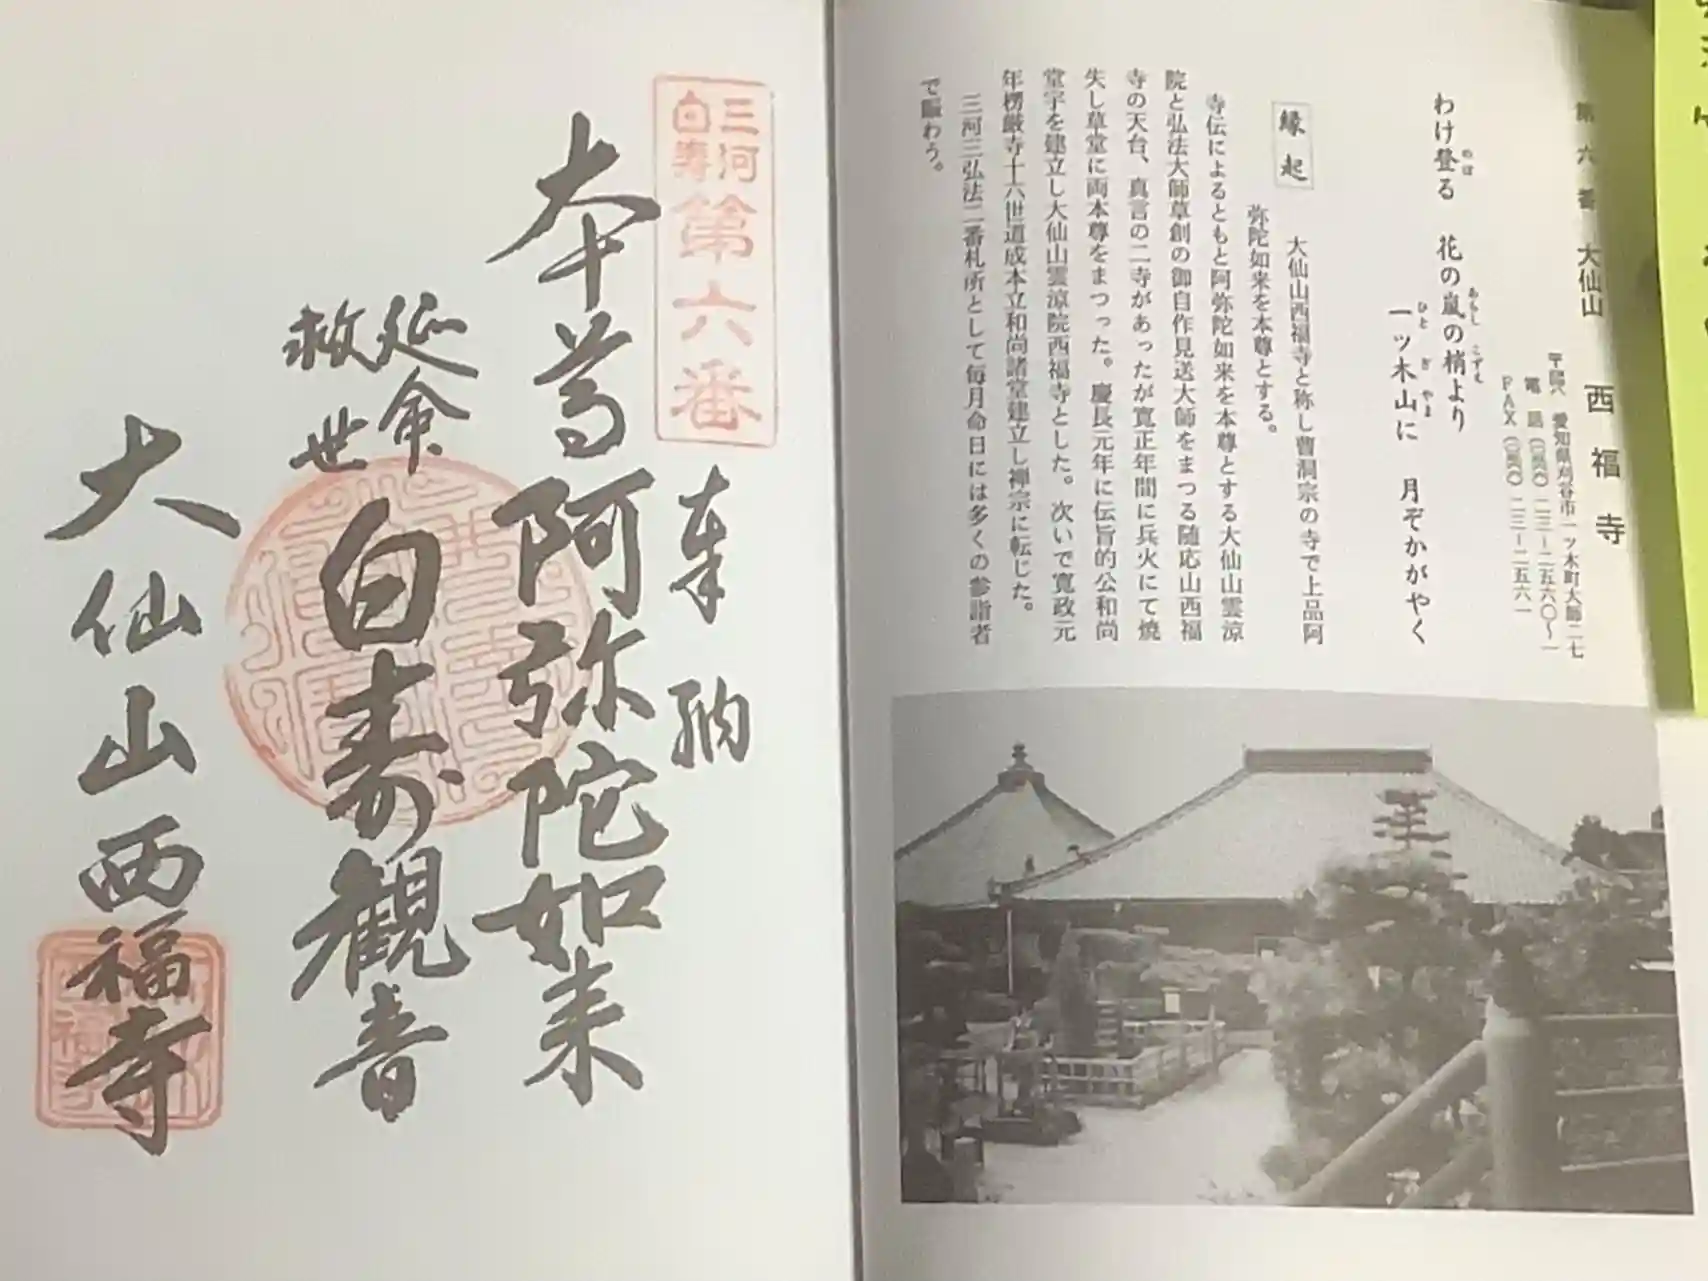 第六番 大仙山 西福寺
愛知県刈谷市一ツ木町大師二七
電話 二三―二五六〇~一
FAX 二三―二五六一
わけ登る 花の嵐の梢より
一ツ木山に 月ぞかがやく
縁起
大仙山西福寺と称し曹洞宗の寺で上品阿
弥陀如来を本尊とする。
寺伝によるともと阿弥陀如来を本尊とする大仙山雲涼
院と弘法大師草創の御自作見送大師をまつる随応山西福
寺の天台、真言の二寺があったが寛正年間に兵火にて焼
失し草堂に両本尊をまつった。慶長元年に伝旨的公和尚
堂宇を建立し大仙山雲涼院西福寺とした。次いで寛政元
年楞厳寺十六世道成本立和尚諸堂建立し禅宗に転じた。
三河三弘法二番札所として毎月命日には多くの参詣者
で賑わう。
三河
白寿
第六番
奉納
本尊阿弥陀如来
延命
救世
白寿観音
大仙山西福寺